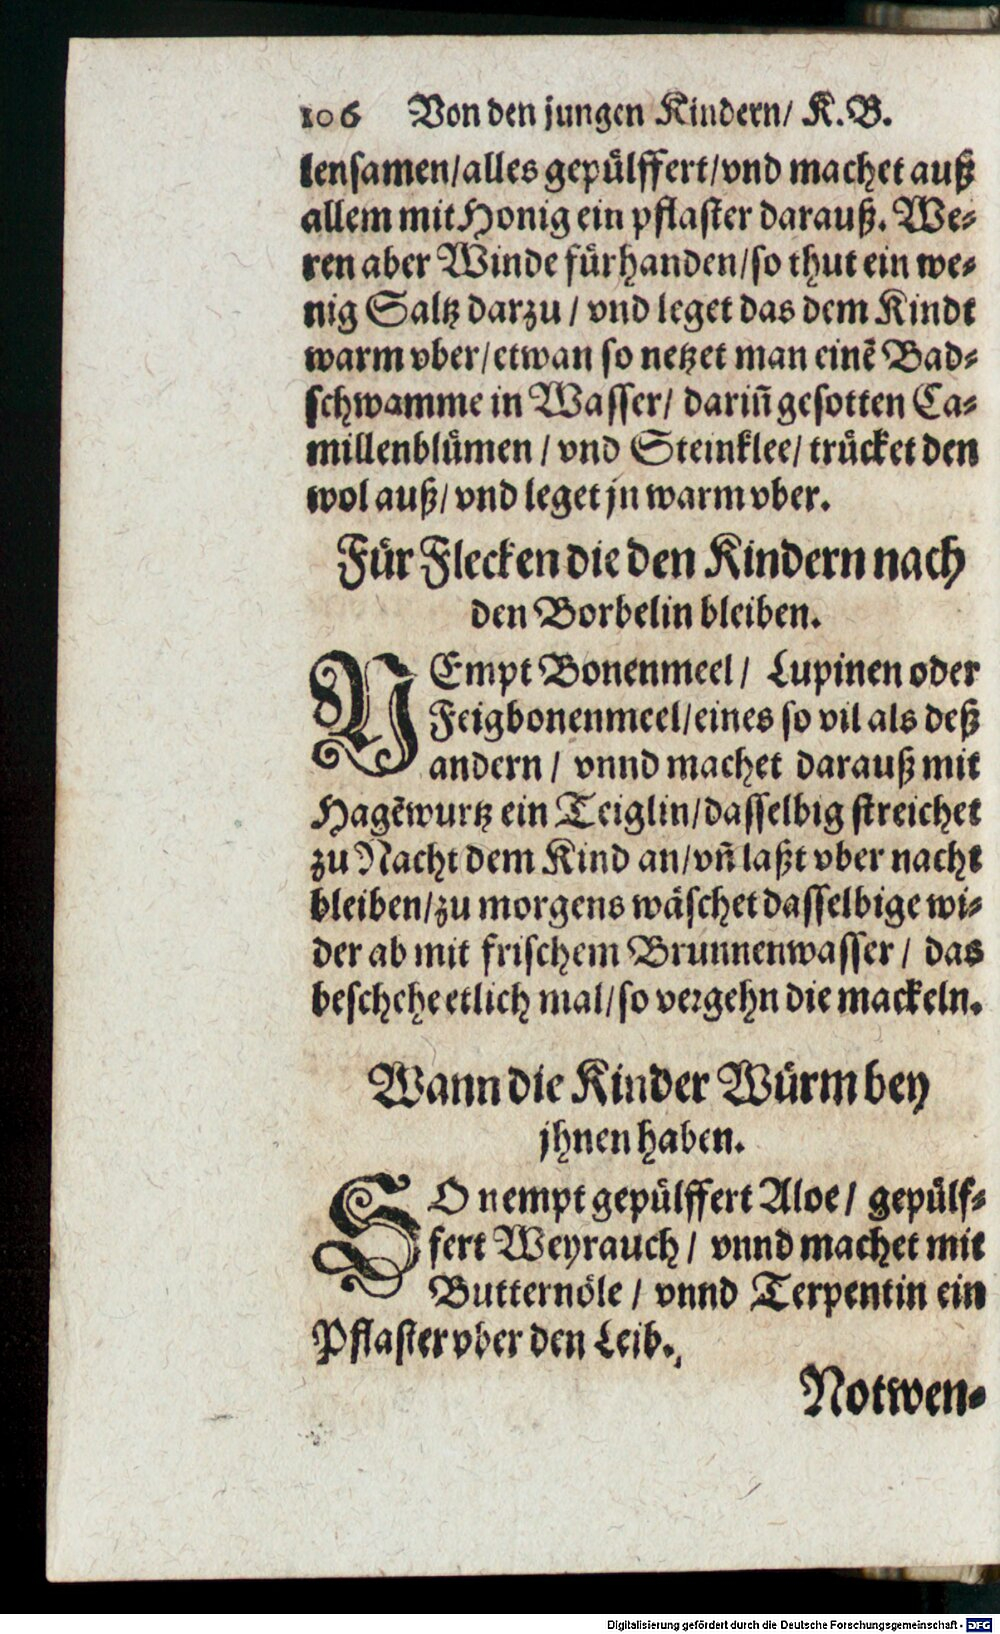 106 Von den jungen Kindern/ K. B.
lensamen/alles gepülffert/vnd machet auß
allem mit Honig ein pflaster darauß. We-
ren aber Winde fürhanden/so thut ein we-
nig Saltz darzu / vnd leget das dem Kindt
warm vber/etwan so netzet man einē Bad-
schwamme in Wasser/ dariñ gesotten Ca-
millenblümen / vnd Steinklee/ trücket den
wol auß/ vnd leget jn warm vber.
Für Flecken die den Kindern nach
den Borbelin bleiben.
NEmpt Bonenmeel / Lupinen oder
Feigbonenmeel/eines so vil als deß
andern / vnnd machet darauß mit
Hagēwurtz ein Teiglin/dasselbig streichet
zu Nacht dem Kind an/vñ laßt vber nacht
bleiben/zu morgens wäschet dasselbige wi-
der ab mit frischem Brunnenwasser / das
beschehe etlich mal/so vergehn die mackeln.
Wann die Kinder Würm bey
jhnen haben.
SO nempt gepülffert Aloe / gepülf-
fert Weyrauch / vnnd machet mit
Butternöle / vnnd Terpentin ein
Pflaster vber den Leib.
Notwen-
Digitalisierung gefördert durch die Deutsche Forschungsgemeinschaft - DFG